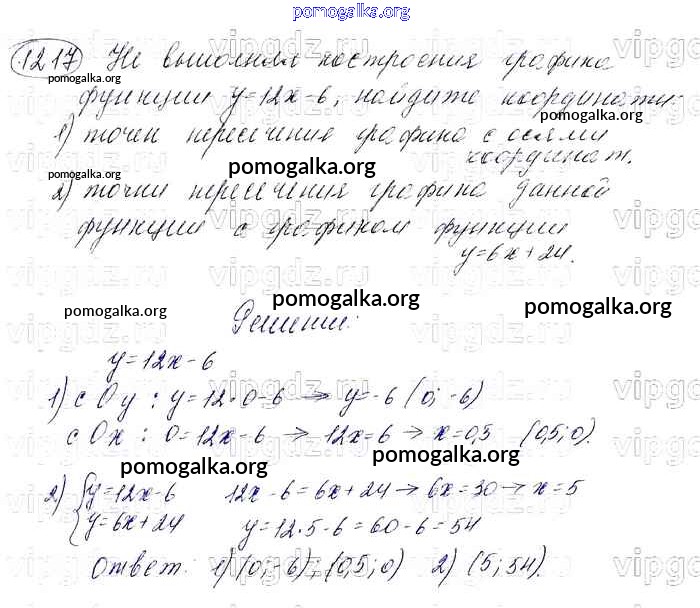 pomogalka.org
1217 Не выполняя построения графика
pomogalka.org
функции y=12x-6, найдите координаты:
pomogalka.org
1) точек пересечения графика с осями
координат.
pomogalka.org
pomogalka.org
2) точки пересечения графика данной
функции с графиком функции
y=6x+24.
pomogalka.org
pomogalka.org
pomogalka.org
Решение:
y=12x-6
1) с Oy: y=12·0-6 → y=-6 (0; -6)
с Ox: 0=12x-6 → 12x=6 → x=0,5 (0,5; 0).
pomogalka.org
pomogalka.org
2) { y=12x-6 12x-6=6x+24 → 6x=30 → x=5
y=6x+24 y=12·5-6=60-6=54
pomogalka.org
Ответ: 1) (0; -6); (0,5; 0) 2) (5; 54).